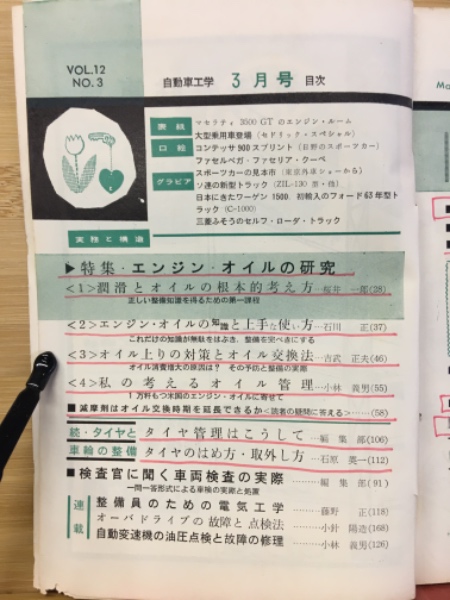 VOL.12
NO.3
自動車工学 3月号 目次
表紙 マセラティ 3500 GT のエンジン・ルーム
大型乗用車登場(セドリック・スペシャル)
口絵 コンテッサ900スプリント(日野のスポーツカー)
ファセルベガ・ファセリア・クーペ
スポーツカーの見本市(東京外車ショーから)
グラビア ソ連の新型トラック(ZIL-130 型・他)
日本にきたワーゲン 1500. 初輸入のフォード63年型ト
ラック(C-1000)
三菱みそうのセルフ・ローダ・トラック
実務と構造
▶特集・エンジン・オイルの研究
<1>潤滑とオイルの根本的考え方…桜井 一郎(28)
正しい整備知識を得るための第一課程
<2>エンジン・オイルの知識と上手な使い方…石川 正(37)
これだけの知識が無駄をはぶき、整備を完ぺきにする
<3>オイル上りの対策とオイル交換法…吉武 正夫(46)
オイル消費増大の原因は? その予防と整備の実際
<4>私の考えるオイル管理…小林 義男(55)
1万粁もつ米国のエンジン・オイルに寄せて
■減摩剤はオイル交換時期を延長できるか<読者の疑問に答える>……(58)
続・タイヤと タイヤ管理はこうして…編集部(106)
車輪の整備 タイヤのはめ方・取外し方…石原 英一(112)
■検査官に聞く車両検査の実際…編集部(91)
一問一答形式による車検の実際と処置
連載 整備員のための電気工学…藤野 正(118)
オーバドライブの故障と点検法…小針 陽造(168)
自動変速機の油圧点検と故障の修理…小林 義男(126)